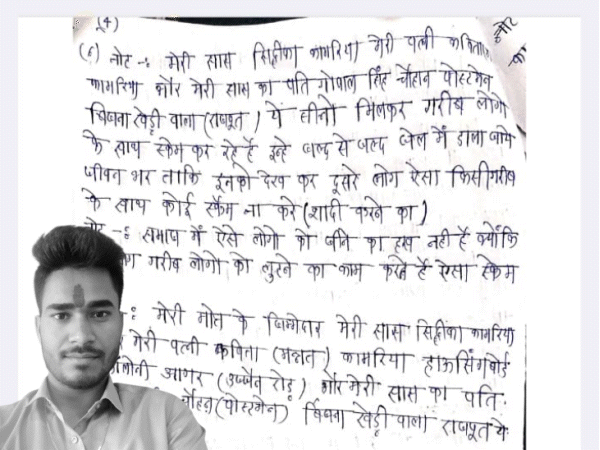 (4)
नोट
का
(6) नोट -: मेरी सास सिद्दीका कामरिया मेरी पत्नी कविता
कामरिया और मेरी सास का पति गोपाल सिंह चौहान पोस्टमेन
खेड़ी वाला (राजपूत) ये तीनों मिलकर गरीब लोगो
के साथ स्केम कर रहे हैं इन्हे जल्द से जल्द जेल में डाला जाये
जीवन भर ताकि इनको देख कर दूसरे लोग ऐसा किसी गरीब
के साथ कोई स्केम ना करे (शादी करने का)
नोट -: समाज में ऐसे लोगो को जीने का हक नही है क्योंकि
गरीब लोगो को लुटने का काम करते हैं ऐसा स्केम
-: मेरी मोत के जिम्मेदार मेरी सास सिद्दीका कामरिया
मेरी पत्नी कविता कामरिया हाऊसिंगबोर्ड
आगर (उज्जैन रोड़) और मेरी सास का पति
चौहान (पोस्टमेन) खेड़ी वाला राजपूत ये